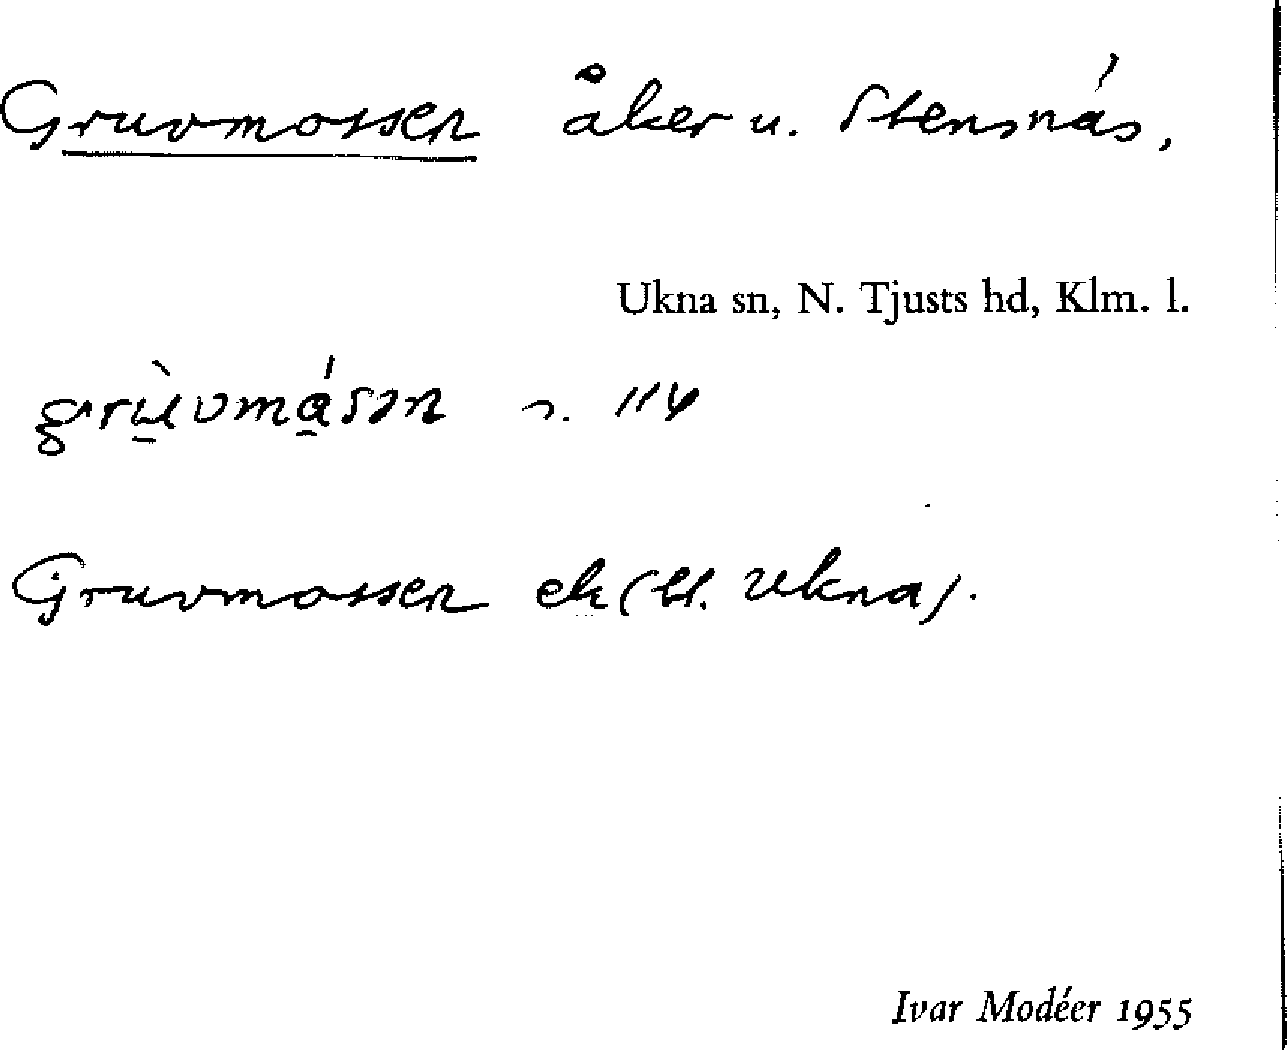 Gruvmossen åker u. Stensnäs,
Ukna sn, N. Tjusts hd, Klm. l.
114
Gruvmossen ek (bl. Ukna).
Ivar Modéer 1955